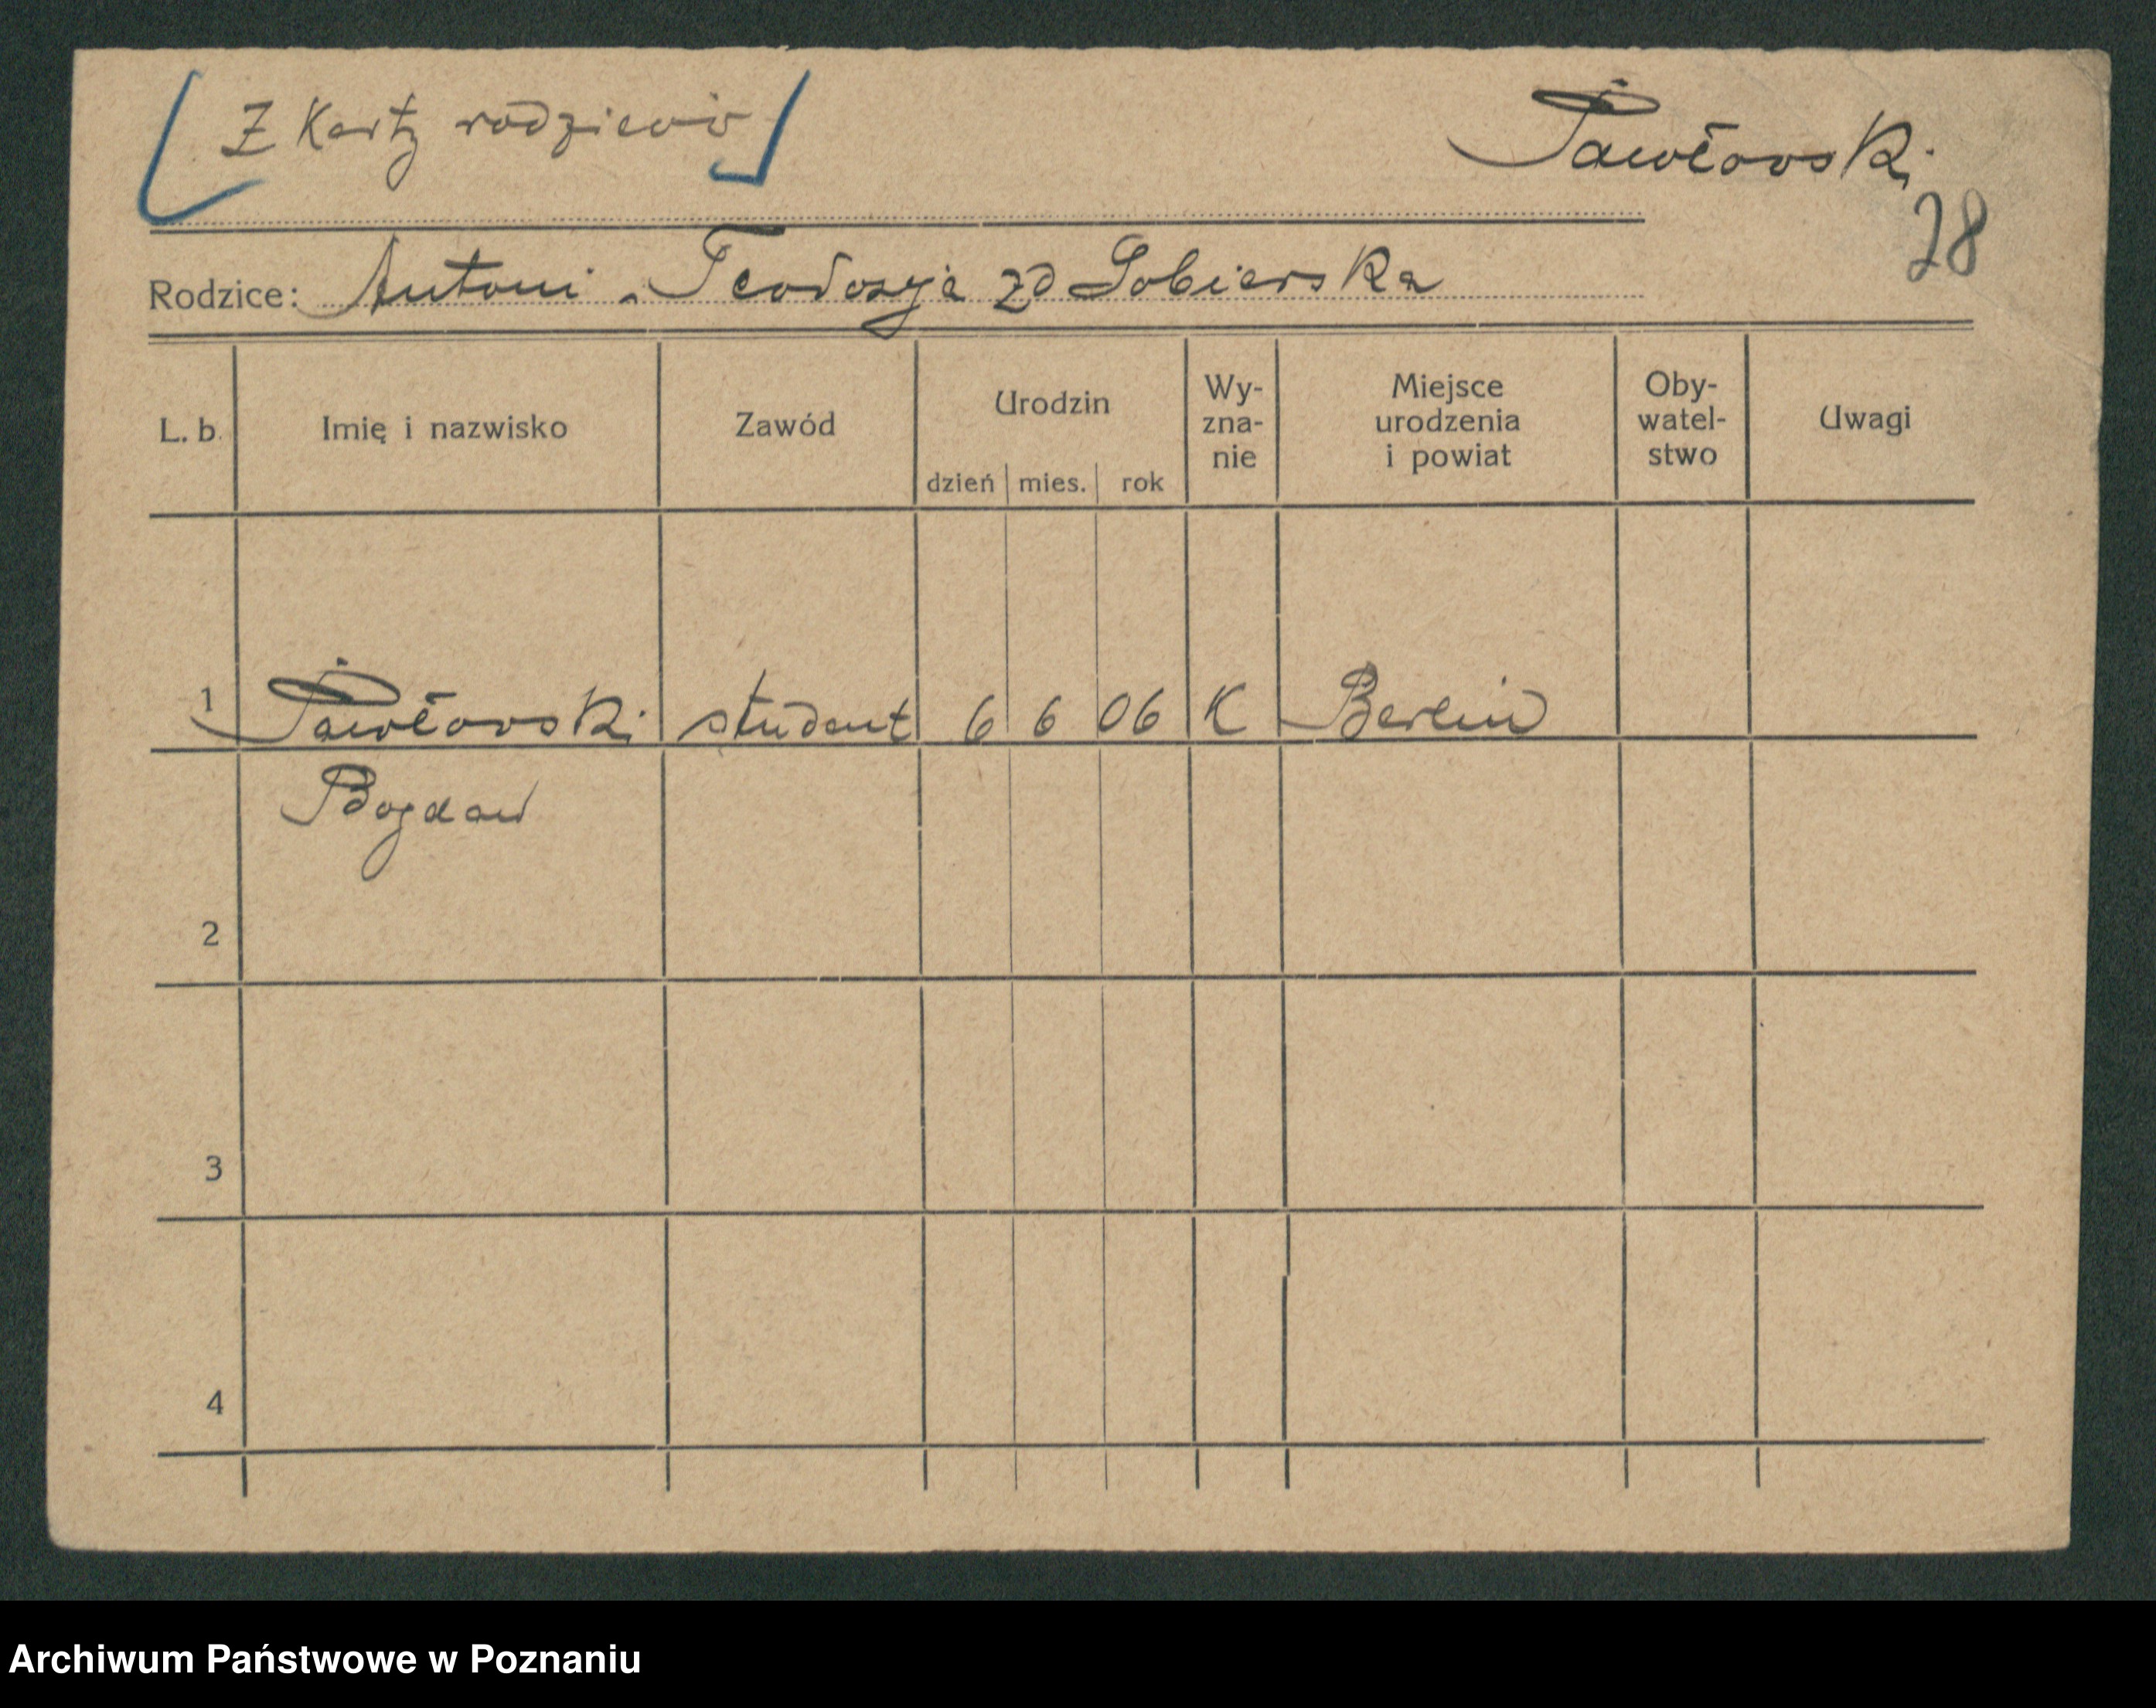 Z Karty rodziców
Pawłowski
28
Rodzice: Antoni - Teodozja zd Sobierska
L. b. Imię i nazwisko Zawód Urodzin dzień mies. rok Wy-zna-nie Miejsce urodzenia i powiat Oby-watel-stwo Uwagi
1 Pawłowski student 6 6 06 K Berlin
Bogdan
2
3
4
Archiwum Państwowe w Poznaniu